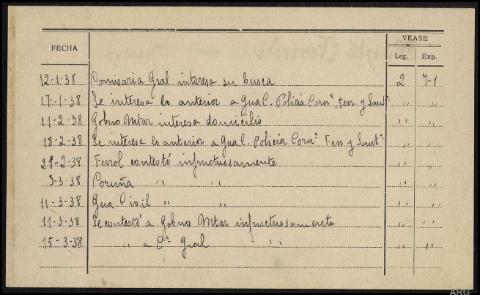 VEASE
FECHA Leg. Exp.
12-1-38 Comisaria Gral interesa su busca 2 7-1
17-1-38 Se interesa lo anterior a Gua C. Policia Coruª. Fen y Santº. " "
11-2-38 Gobno Mtar interesa domicilio " "
18-2-38 Se interesa lo anterior a Gua C. Policia Coruª. Fen y Santº. " "
-2-38 Ferrol contestó infructuosamente " "
3-3-38 Coruña " " " "
11-3-38 Gua Civil " " " "
11-3-38 Se contestó a Gobno Mtar infructuosamente " "
15-3-38 " a Cª Gral " " "
ARG